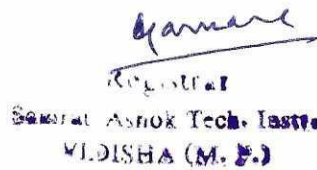 Registrar
Samrat Ashok Tech. Instt
VIDISHA (M. P.)